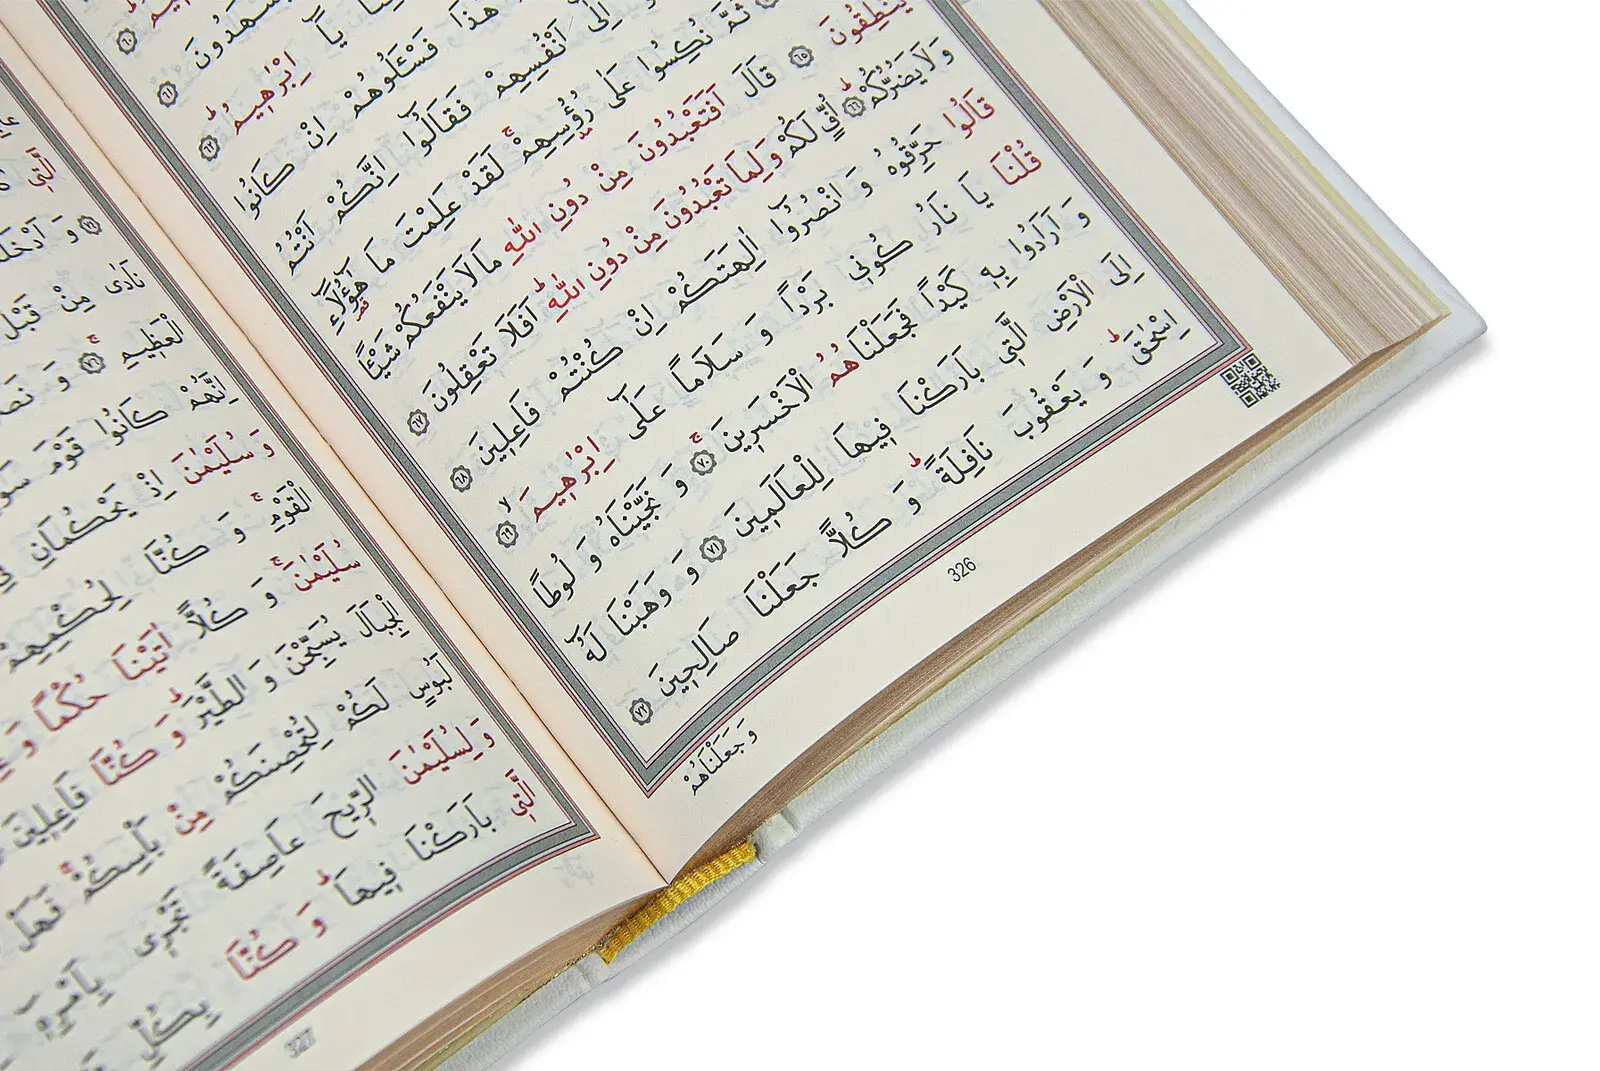 ٦٠
هَدُونَ ٦١
يَآ اِبْرٰهِيمُ ٦٢
هٰذَا فَسْـَٔلُوهُمْ اِنْ كَانُوا
اِلٰٓى اَنْفُسِهِمْ فَقَالُٓوا اِنَّكُمْ اَنْتُمُ
ثُمَّ نُكِسُوا عَلٰى رُؤُسِهِمْ لَقَدْ عَلِمْتَ مَا هٰٓؤُلَٓاءِ
يَنْطِقُونَ ٦٥ قَالَ اَفَتَعْبُدُونَ مِنْ دُونِ اللّٰهِ مَا لَا يَنْفَعُكُمْ شَيْـًٔا
وَ لَا يَضُرُّكُمْ ٦٦ اُفٍّ لَكُمْ وَ لِمَا تَعْبُدُونَ مِنْ دُونِ اللّٰهِ اَفَلَا تَعْقِلُونَ ٦٧
قَالُوا حَرِّقُوهُ وَ انْصُرُٓوا اٰلِهَتَكُمْ اِنْ كُنْتُمْ فَاعِلِينَ ٦٨
قُلْنَا يَا نَارُ كُونِى بَرْدًا وَ سَلَامًا عَلٰٓى اِبْرٰهِيمَ ٦٩
وَ اَرَادُوا بِهٖ كَيْدًا فَجَعَلْنَاهُمُ الْاَخْسَرِينَ ٧٠ وَ نَجَّيْنَاهُ وَ لُوطًا
اِلَى الْاَرْضِ الَّتِى بَارَكْنَا فِيهَا لِلْعَالَمِينَ ٧١ وَ وَهَبْنَا لَهُٓ
اِسْحٰقَ وَ يَعْقُوبَ نَافِلَةً وَ كُلًّا جَعَلْنَا صَالِحِينَ ٧٢
وَ جَعَلْنَاهُمْ
326
الَّتِى
٧٤ وَ اَدْخَلْ
نَادٰى مِنْ قَبْلُ
الْعَظِيمِ ٧٦ وَ نَصَرْ
اِنَّهُمْ كَانُوا قَوْمَ سَوْ
وَ سُلَيْمٰنَ اِذْ يَحْكُمَانِ فِى
الْقَوْمِ وَ كُنَّا لِحُكْمِهِمْ
سُلَيْمٰنَ وَ كُلًّا اٰتَيْنَا حُكْمًا وَ
الْجِبَالَ يُسَبِّحْنَ وَ الطَّيْرَ وَ كُنَّا فَاعِلِينَ
لَبُوسٍ لَكُمْ لِتُحْصِنَكُمْ مِنْ بَأْسِكُمْ فَهَلْ
وَ لِسُلَيْمٰنَ الرِّيحَ عَاصِفَةً تَجْرِى بِاَمْرِهٖٓ
الَّتِى بَارَكْنَا فِيهَا وَ كُنَّا بِكُلِّ
327